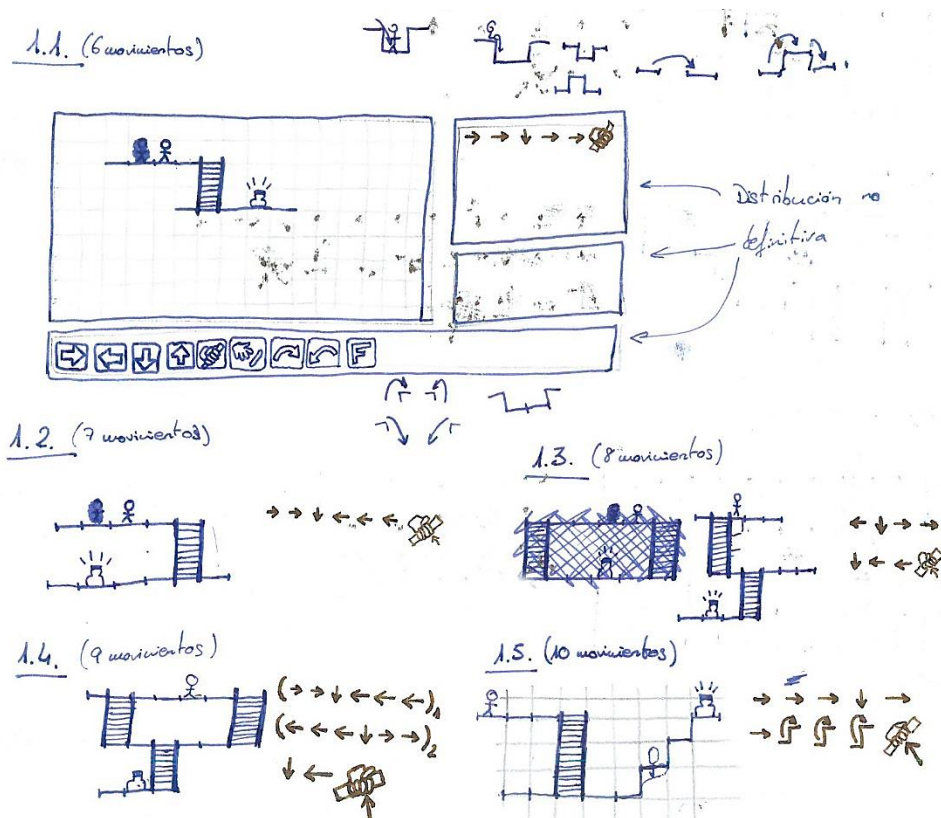 1.1. (6 movimientos)
Distribución no
definitiva
F
1.2. (7 movimientos)
1.3. (8 movimientos)
1.4. (9 movimientos)
( → → ↓ ← ← ← )1
( ← ← ← ↓ → → )2
1.5. (10 movimientos)